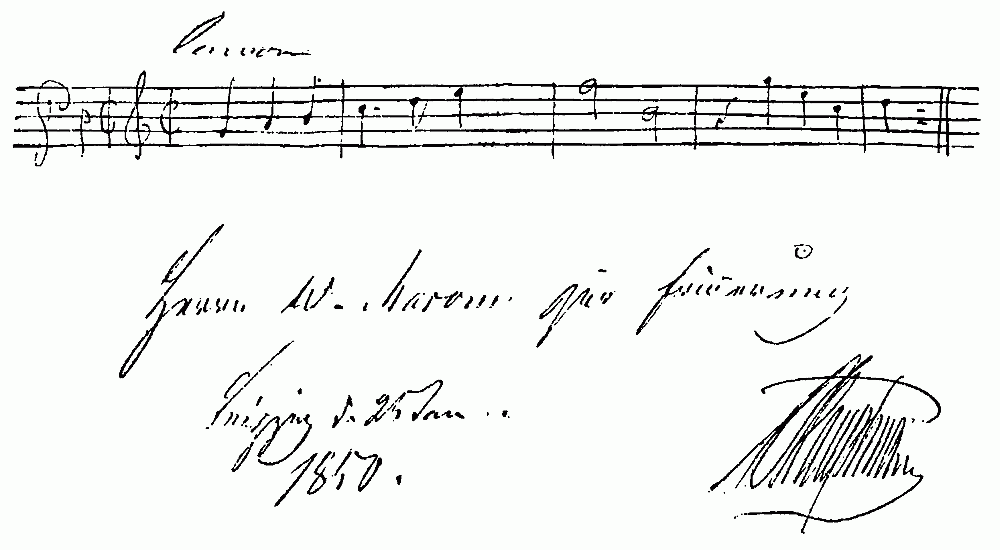 Canon
Herrn W. Mason zur Erinnerung
Leipzig d. 25 Jan.
1850.
MHauptmann